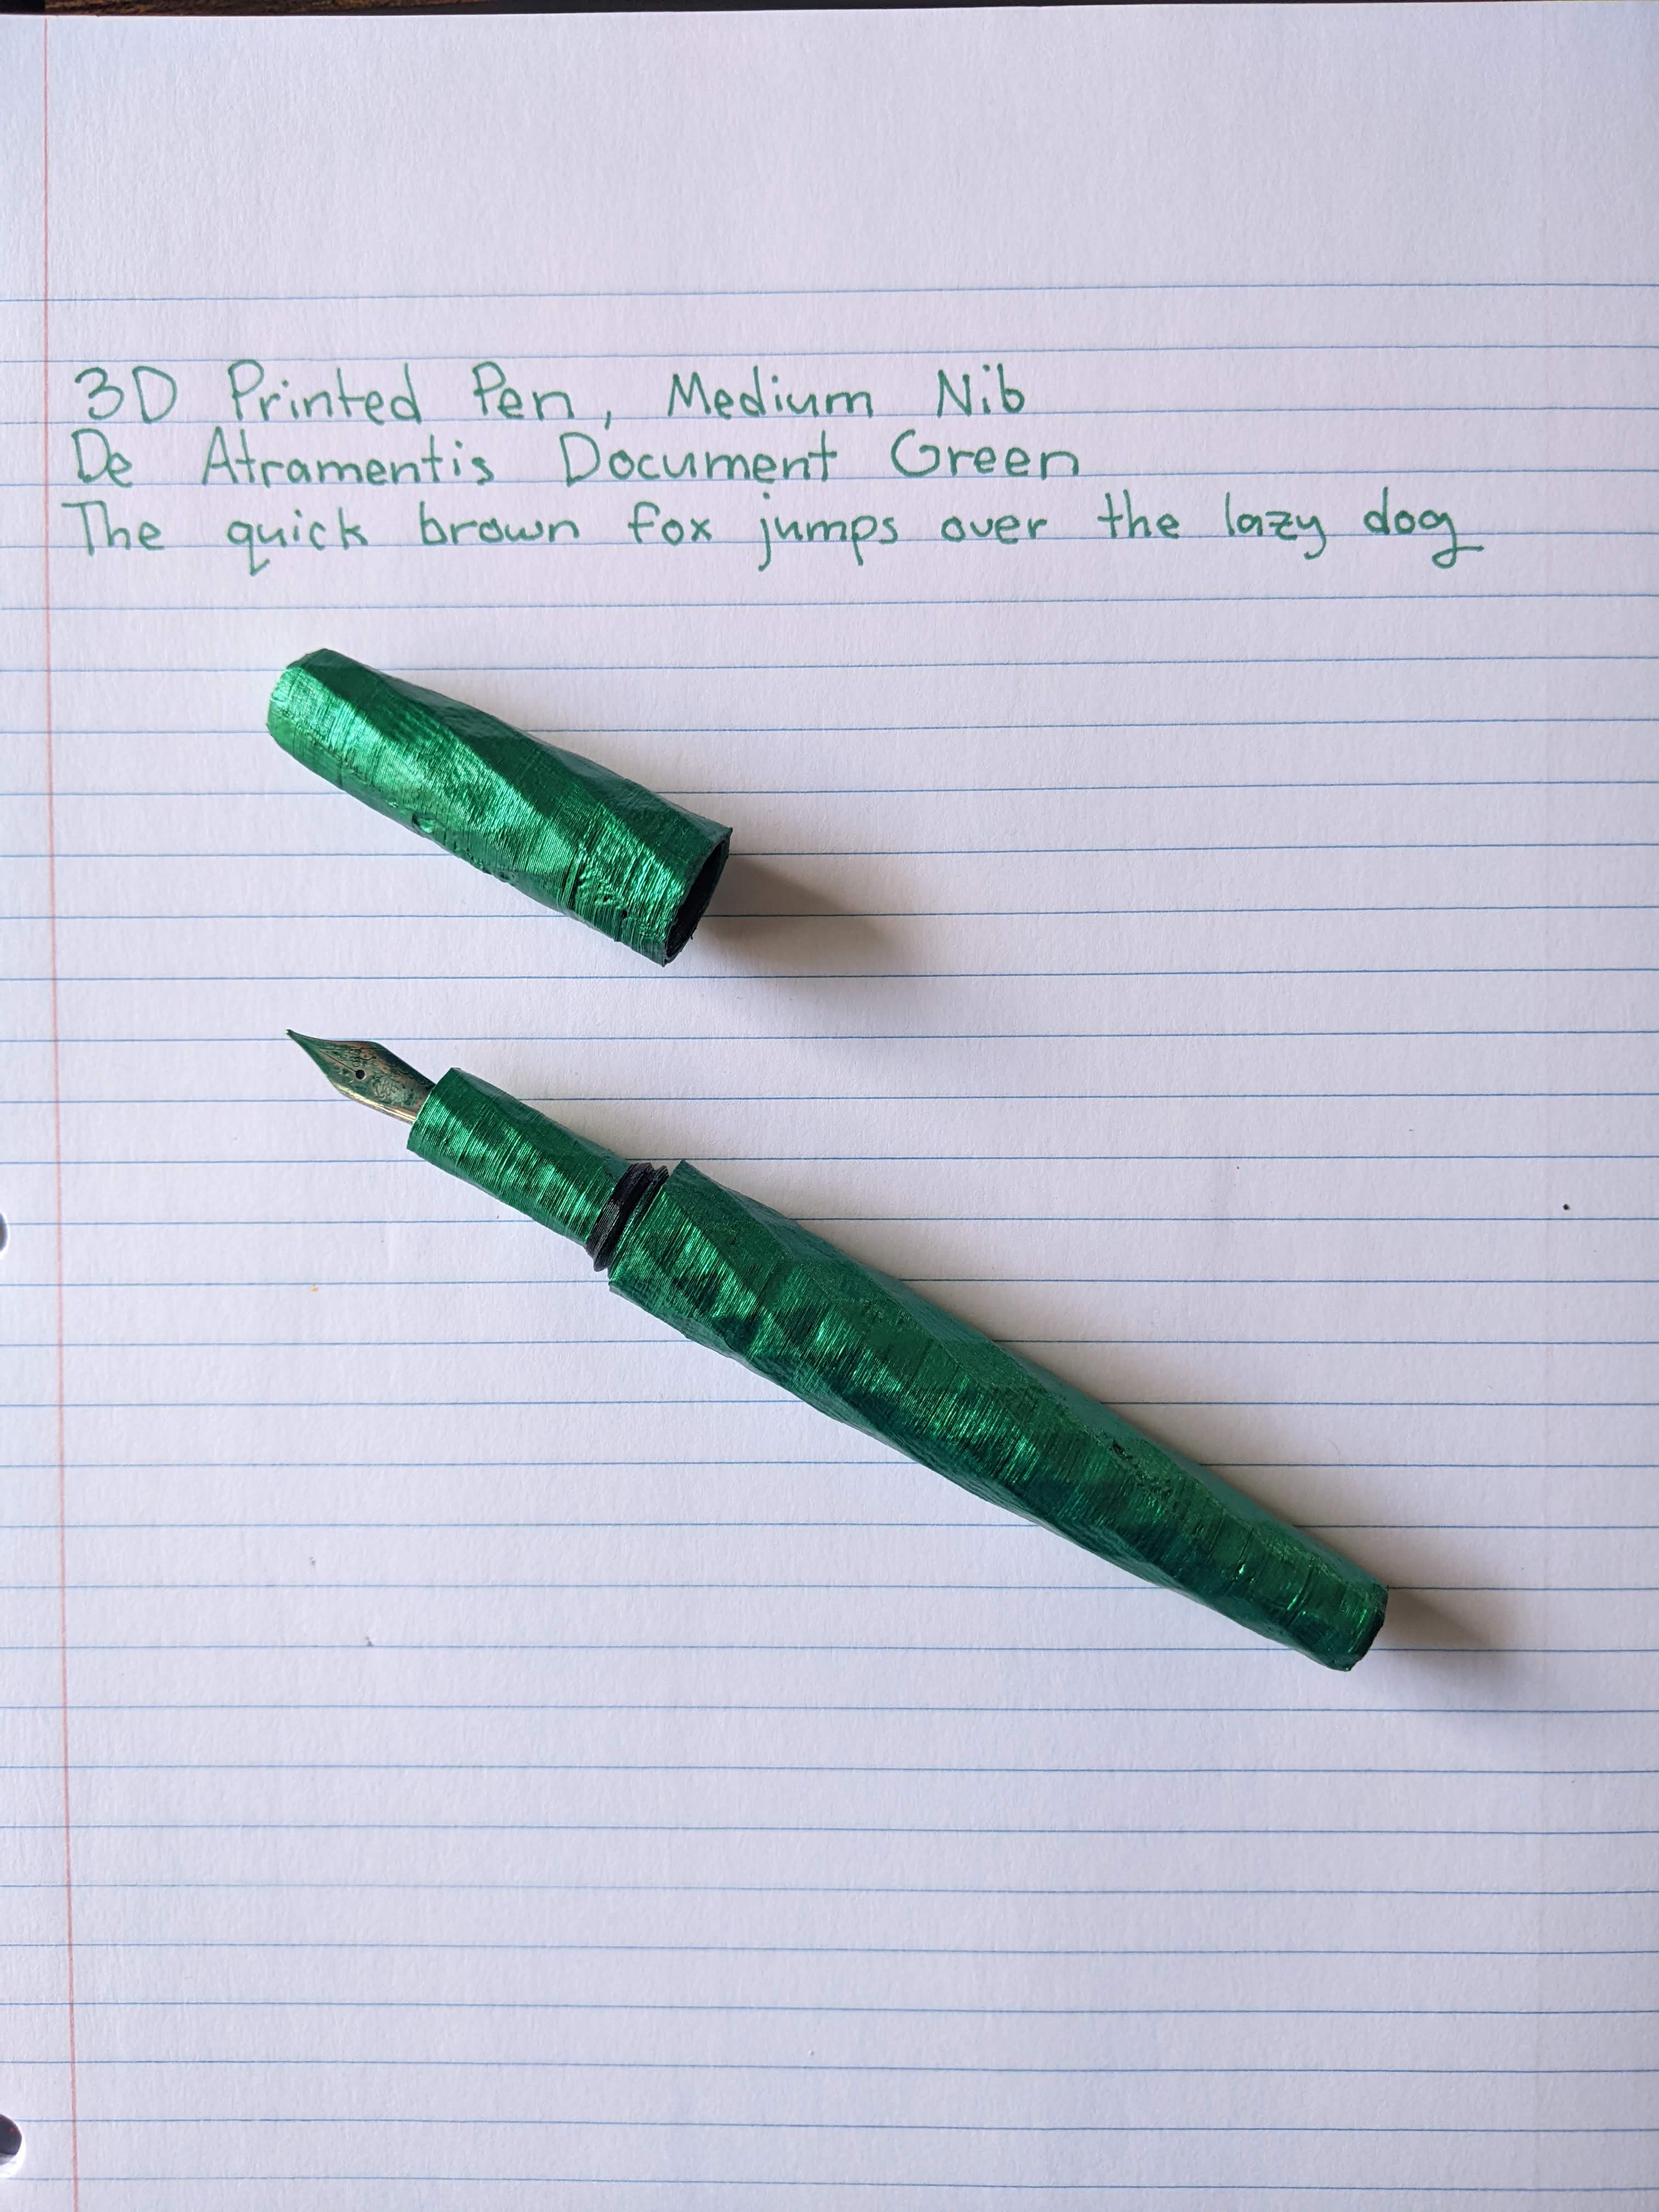 3D Printed Pen, Medium Nib
De Atramentis Document Green
The quick brown fox jumps over the lazy dog